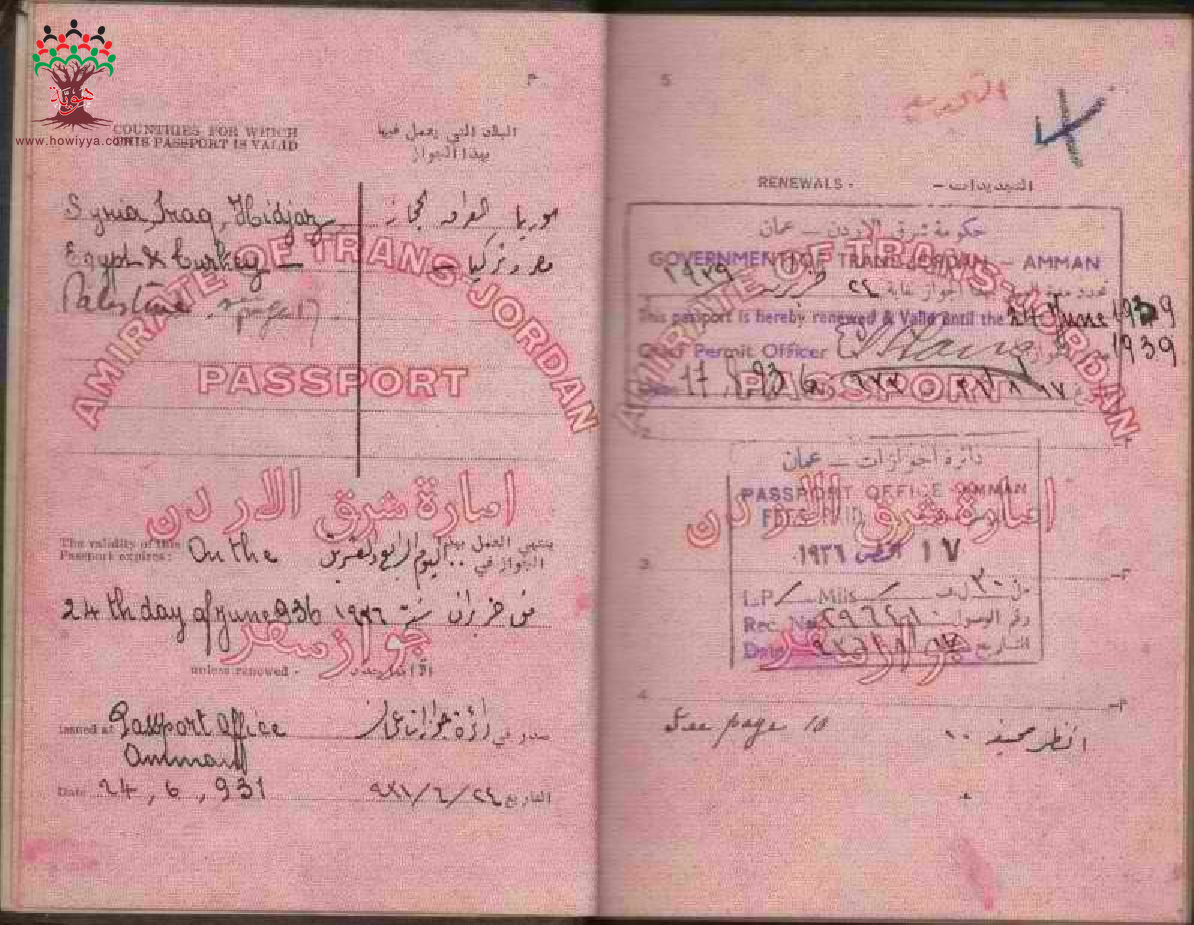 www.howiyya.com
٣
COUNTRIES FOR WHICH
THIS PASSPORT IS VALID
البلاد التي يعمل فيها
بهذا الجواز
Syria, Iraq, Hidjaz,
سوريا العراق الحجاز
Egypt & Turkey
مصر وتركيا
Palestine. see page 17.
AMIRATE OF TRANS-JORDAN
PASSPORT
امارة شرق الاردن
The validity of this
Passport expires:
On the
ينتهي العمل بهذا
الجواز في
اليوم الرابع والعشرين
24th day of June 936
من حزيران سنة ١٩٣٦
جواز سفر
unless renewed -
Issued at Passport Office
Amman
صدر في دائرة جوازات عمان
Date 24, 6, 931
التاريخ ٩٣١/٦/٢٤
5
RENEWALS -
التجديدات -
حكومة شرق الاردن - عمان
GOVERNMENT OF TRANSJORDAN - AMMAN
لغاية ٢٤ حزيران ١٩٣٩
This passport is hereby renewed & Valid until the 24 June 1939
1939
Chief Permit Officer
AMIRATE OF TRANS-JORDAN
PASSPORT
2
دائرة الجوازات - عمان
PASSPORT OFFICE AMMAN
FEES PAID
امارة شرق الاردن
١٧ ١٩٣٦
3
٣
L.P. Mils
Rec. No.
رقم الوصول
Date
التاريخ
جواز سفر
4
See page 10
انظر صحيفة ١٠